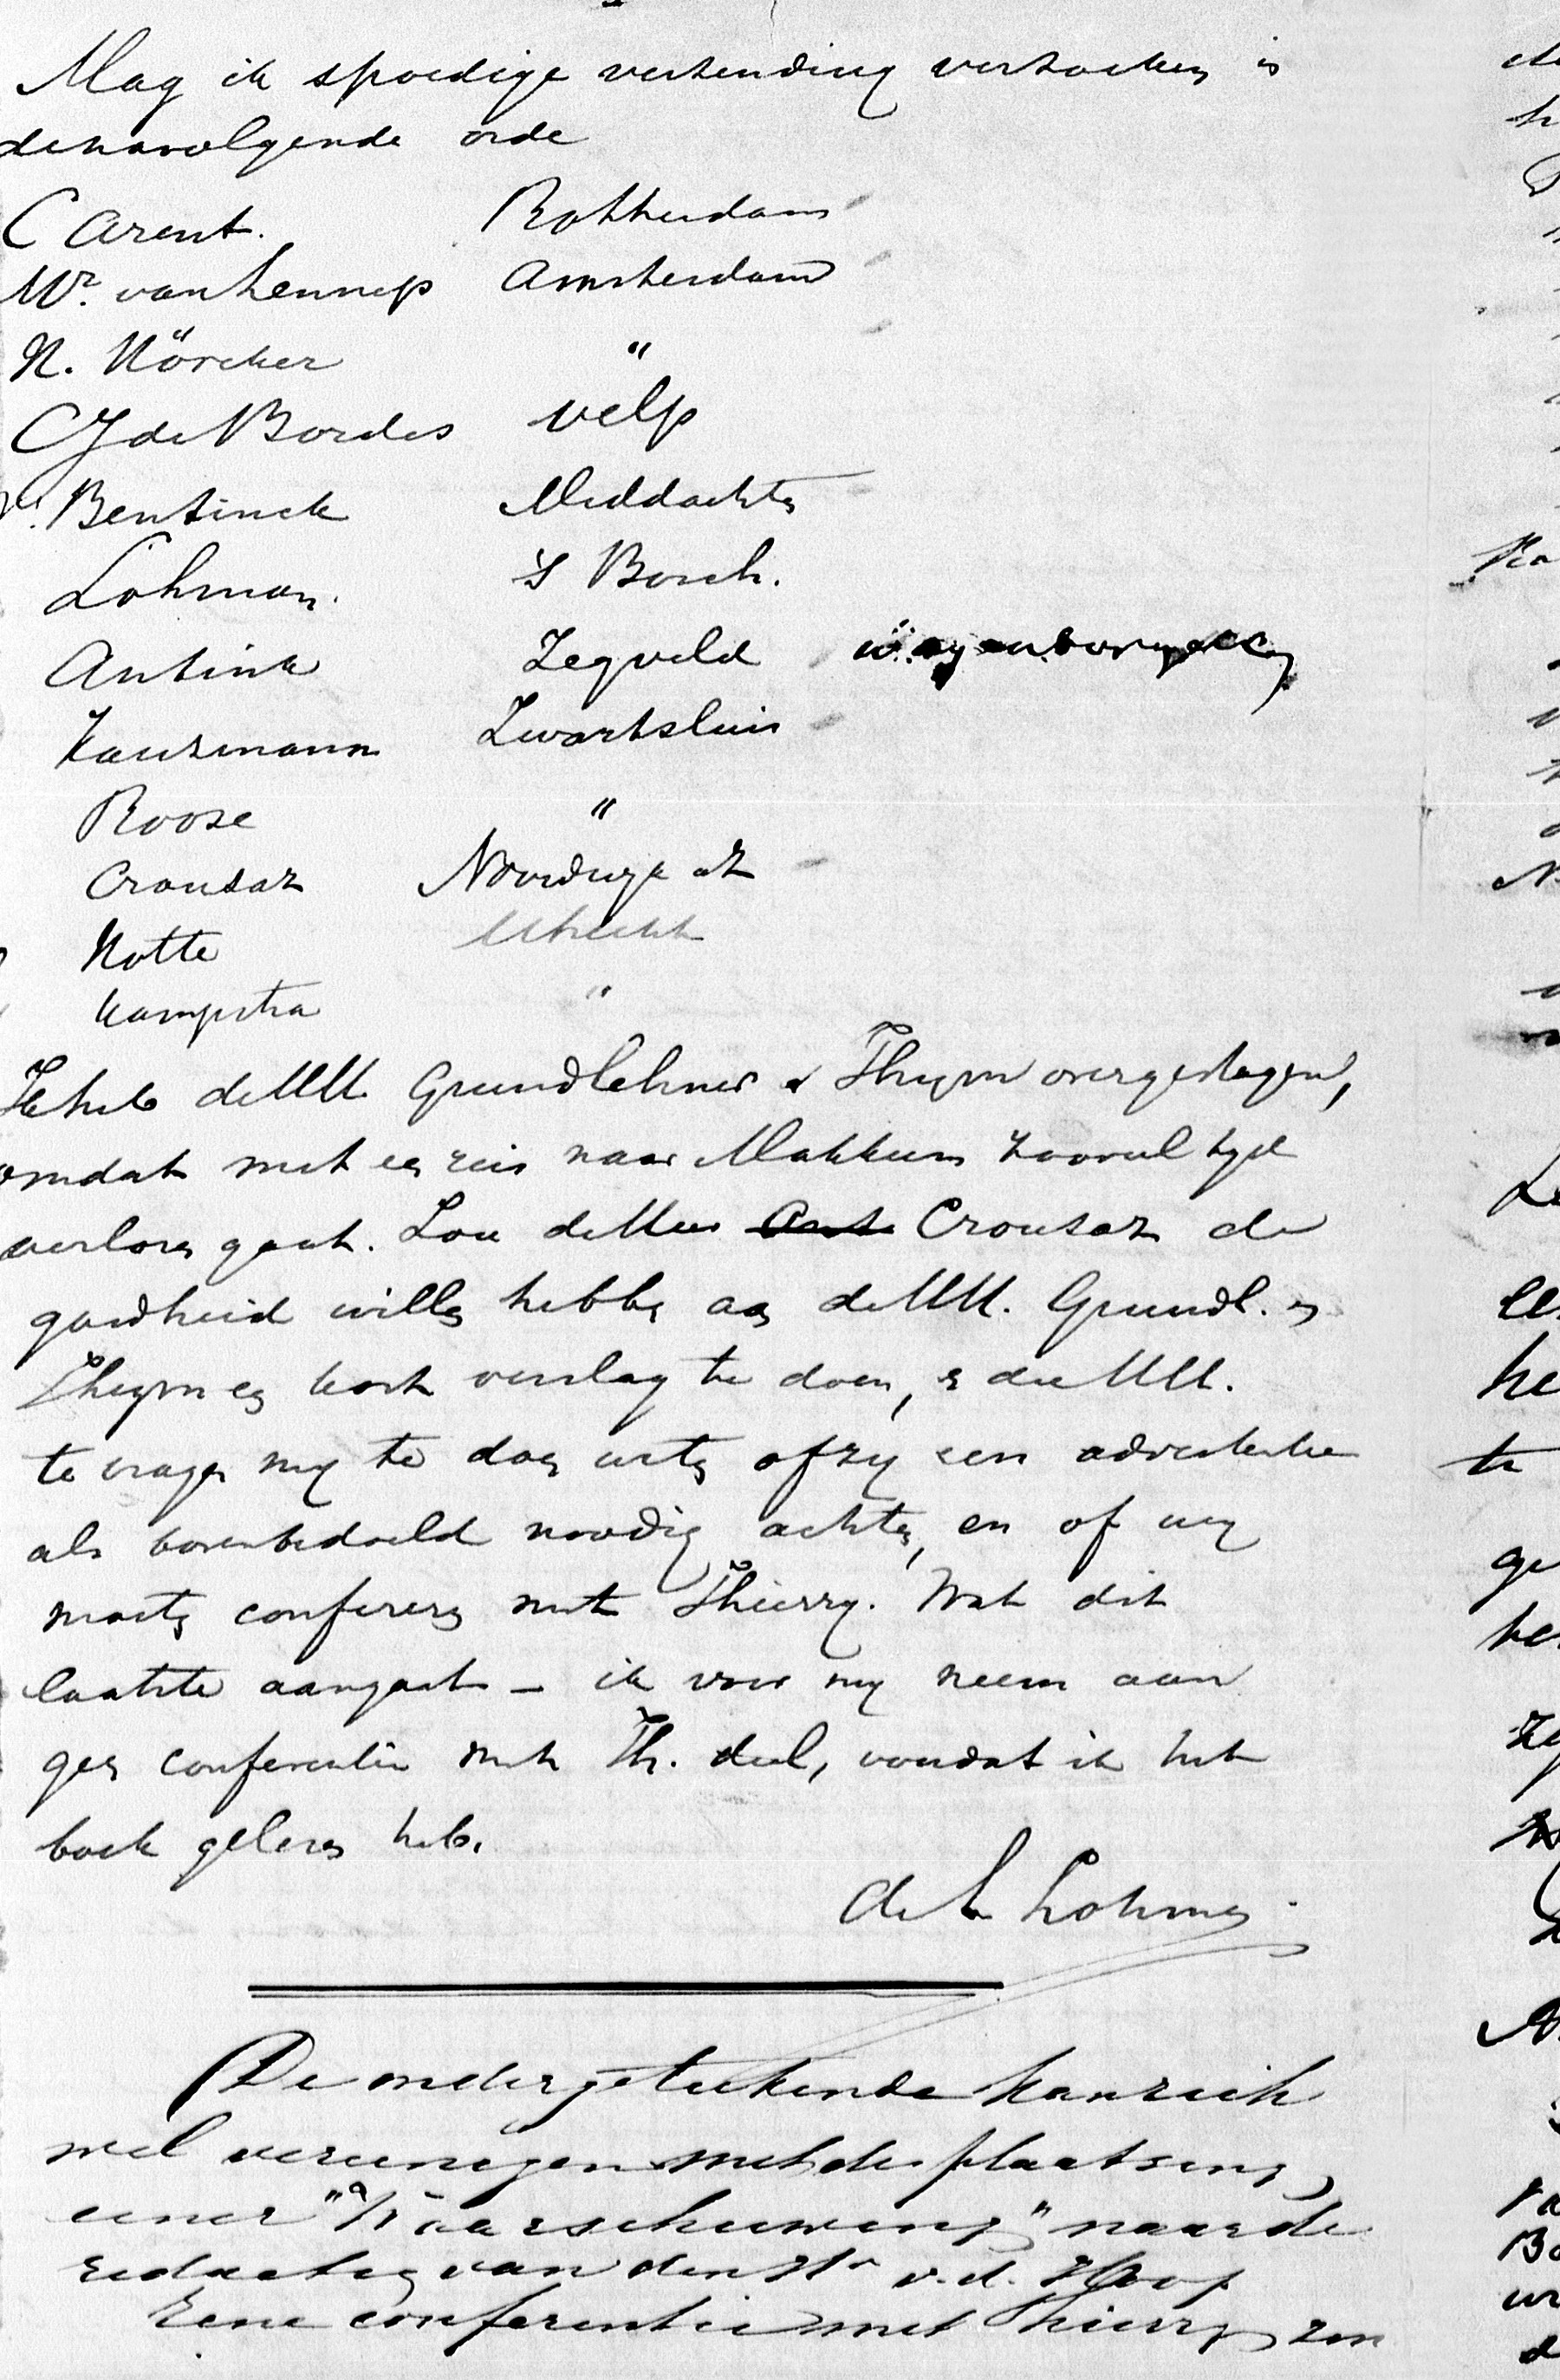 Mag ik spoedige verzending verzoeken in
denavolgende orde
C Arent. Rotterdam
Mr. van Lennep Amsterdam
N. Nörcker "
CJ de Bordes Velp
Bentinck Middachten
Lohman. 's Bosch.
Antink Zegveld
Kautzmann Zwartsluis
Roose "
Crousaz Noordwijk aZ
Notte Utrecht
Kampstra "
Ik heb de HH. Grundlehner & Thym overgeslagen,
omdat met een reis naar Makkum zooveel tyd
verloren gaat. Zou de Heer Crousaz de
goedheid willen hebben aan de HH. Grundl. en
Thym een kort verslag te doen, en die HH.
te vragen my te doen weten of zy een advertentie
als bovenbedoeld noodig achten, en of wy
moeten confereren met Thierry. Wat dit
laatste aangaat - ik voor my neem aan
geen conferentie met Th. deel, voordat ik het
boek gelezen heb.
de S. Lohman
De ondergeteekende kan zich
wel vereenigen met de plaatsing
eener "Waarschuwing" naar de
redactie van den Hr v. d. Hoop
Eene conferentie met Thierry zou